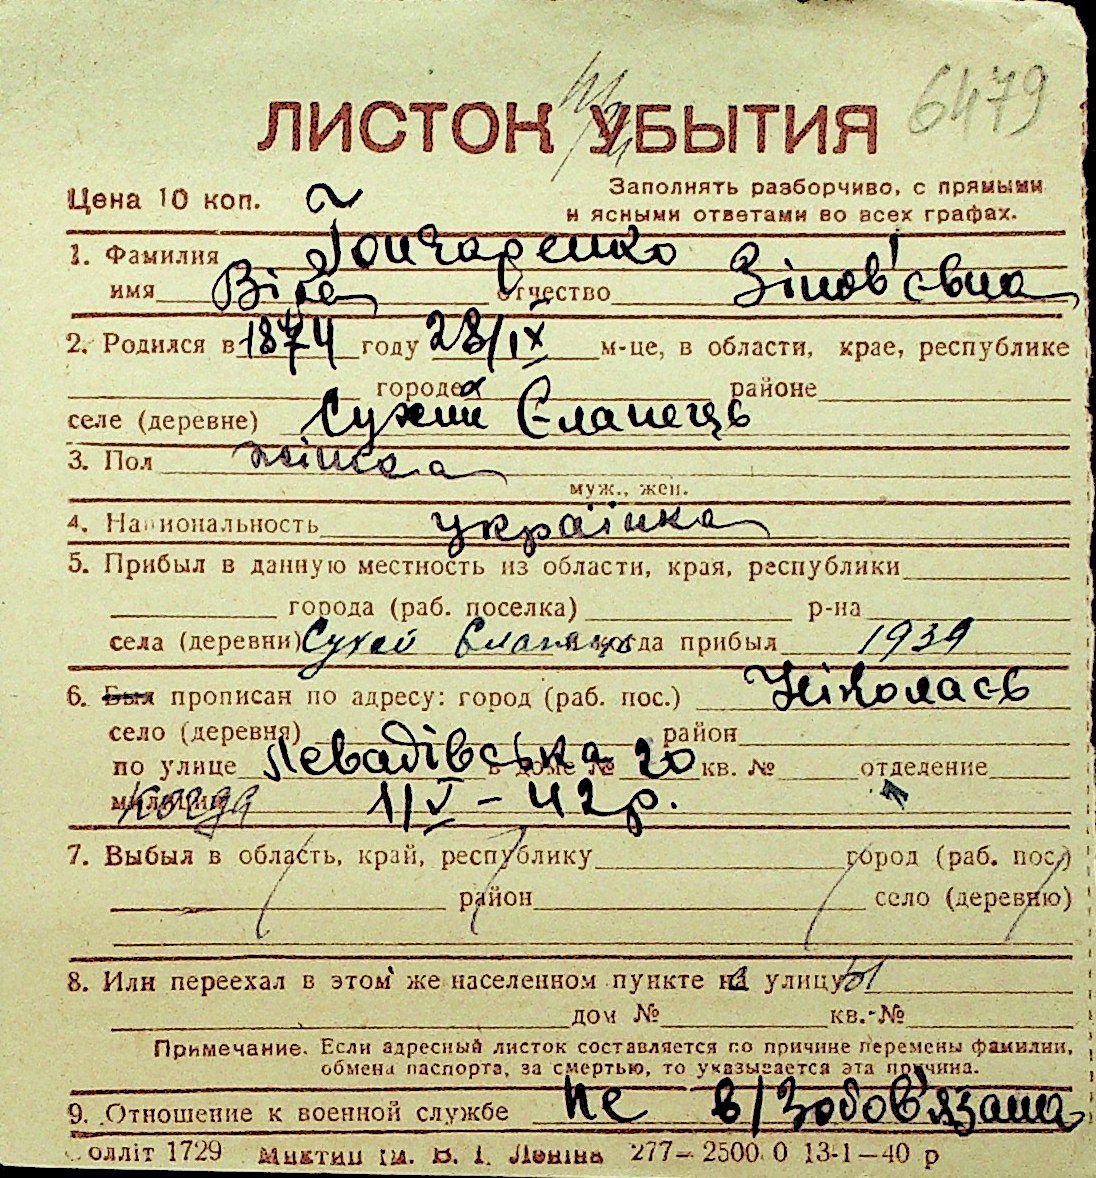 6479
ЛИСТОК УБЫТИЯ
Цена 10 коп.
Заполнять разборчиво, с прямыми
и ясными ответами во всех графах.
1. Фамилия Гончаренко
имя Віра отчество Зінов'євна
2. Родился в 1874 году 28/IX м-це, в области, крае, республике
городе районе
селе (деревне) Сухий Єланець
3. Пол жінка
муж., жен.
4. Национальность українка
5. Прибыл в данную местность из области, края, республики
города (раб. поселка) р-на
села (деревни) Сухой Еланец когда прибыл 1939
6. Был прописан по адресу: город (раб. пос.) Ніколаєв
село (деревня) район
по улице Левадівська в доме № 20 кв. № отделение
милиции когда 1/V - 42 р.
7. Выбыл в область, край, республику город (раб. пос.)
район село (деревню)
8. Или переехал в этом же населенном пункте на улицу
дом № кв. №
Примечание. Если адресный листок составляется по причине перемены фамилии,
обмена паспорта, за смертью, то указывается эта причина.
9. Отношение к военной службе не в/зобов'язана
олліт 1729 ім. В. І. Леніна 277—2500.0 13-1—40 р